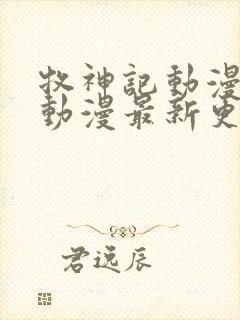 牧神記動漫
動漫最新更
君遠辰